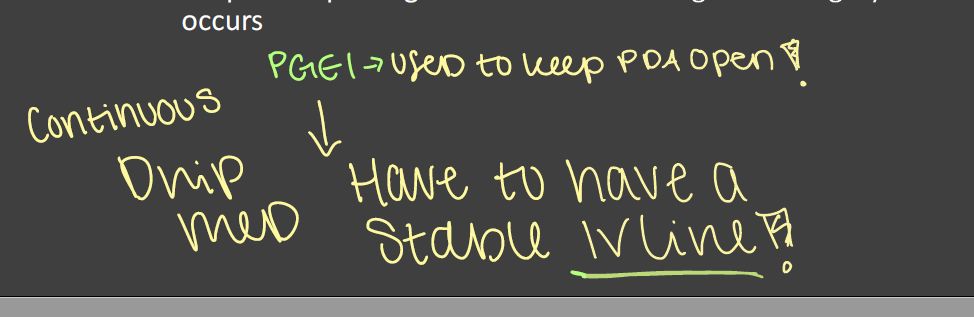 occurs
PGE1 → used to keep PDA open!
Continuous
Drip
med
Have to have a
Stable IV line!